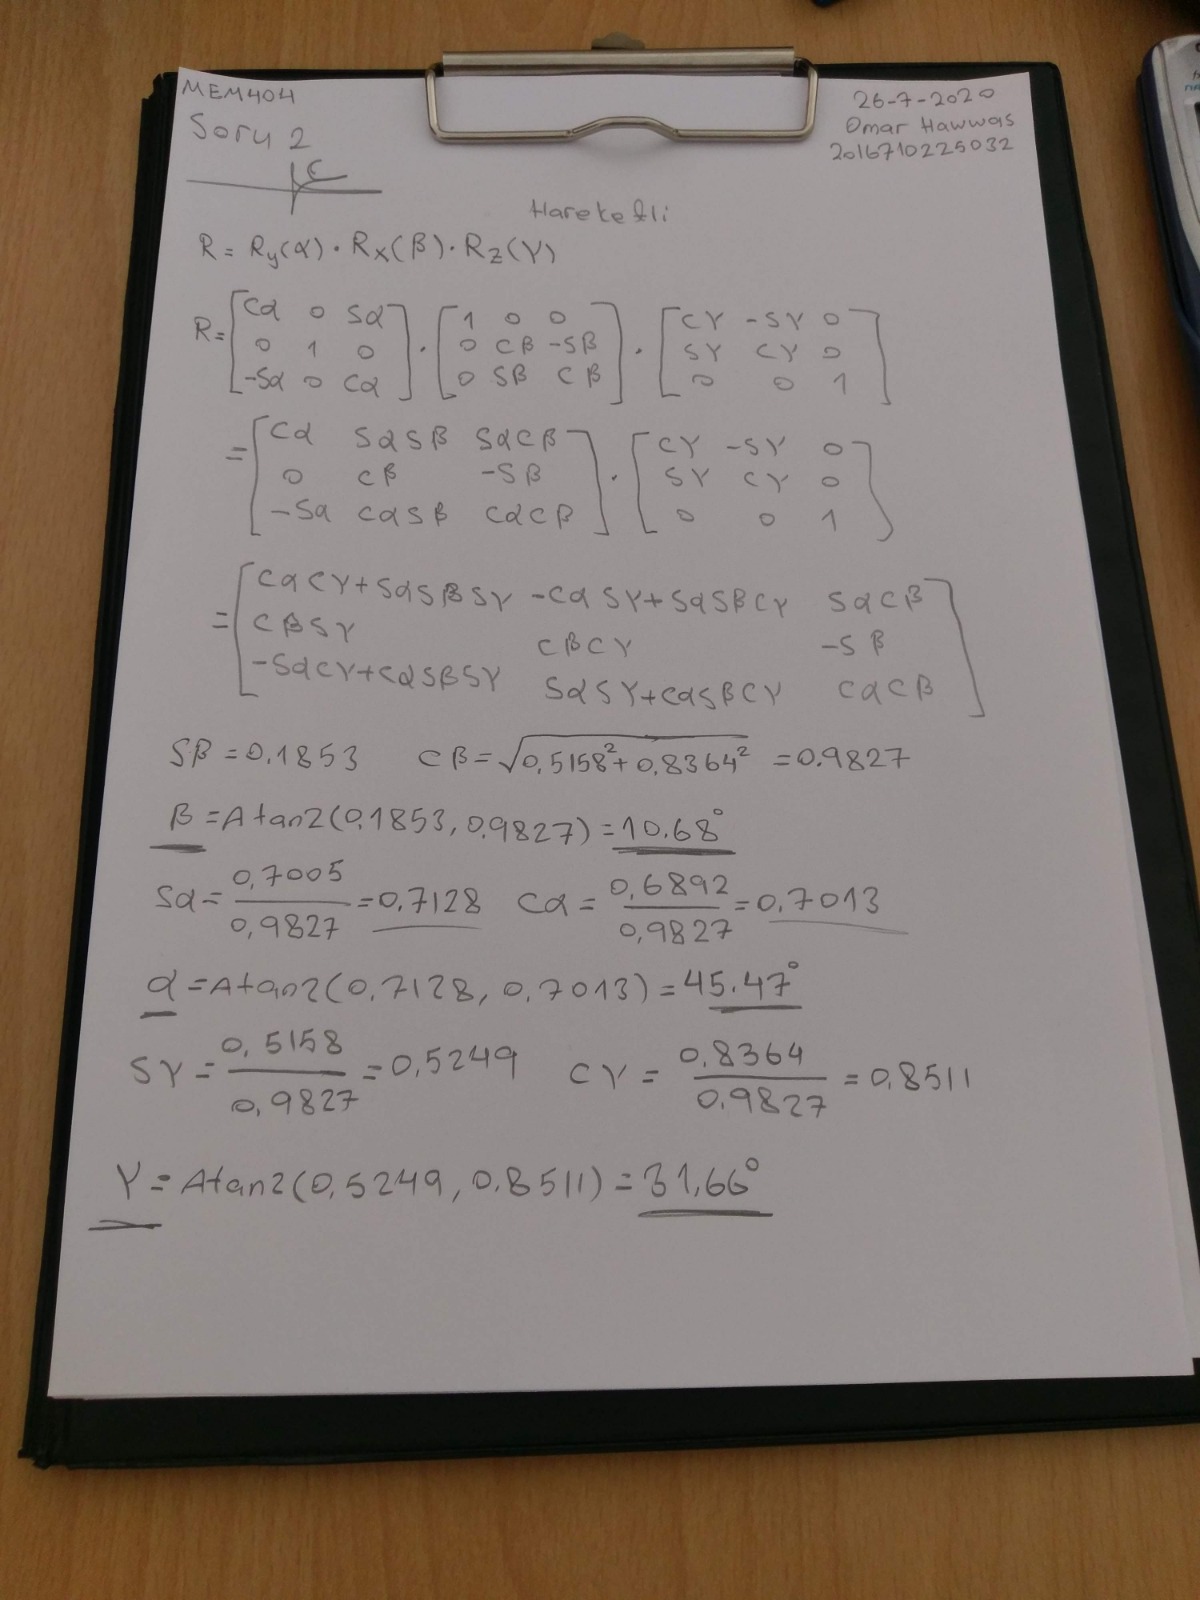 MEM404
26-7-2020
Soru 2
Omar Hawwas
2016710225032
Hareketli
R = Ry(α) · Rx(β) · Rz(γ)
R = [Cα 0 Sα] · [1 0 0] · [Cγ -Sγ 0]
[0 1 0] [0 Cβ -Sβ] [Sγ Cγ 0]
[-Sα 0 Cα] [0 Sβ Cβ] [0 0 1]
= [Cα SαSβ SαCβ] · [Cγ -Sγ 0]
[0 Cβ -Sβ] [Sγ Cγ 0]
[-Sα CαSβ CαCβ] [0 0 1]
= [CαCγ+SαSβSγ -CαSγ+SαSβCγ SαCβ]
[CβSγ CβCγ -Sβ]
[-SαCγ+CαSβSγ SαSγ+CαSβCγ CαCβ]
Sβ = 0.1853 Cβ = √(0,5158²+0,8364²) = 0.9827
β = Atan2(0.1853, 0.9827) = 10.68°
Sα = 0,7005/0,9827 = 0,7128 Cα = 0,6892/0,9827 = 0,7013
α = Atan2(0,7128, 0,7013) = 45.47°
Sγ = 0,5158/0,9827 = 0,5249 Cγ = 0,8364/0.9827 = 0,8511
γ = Atan2(0,5249, 0.8511) = 31,66°